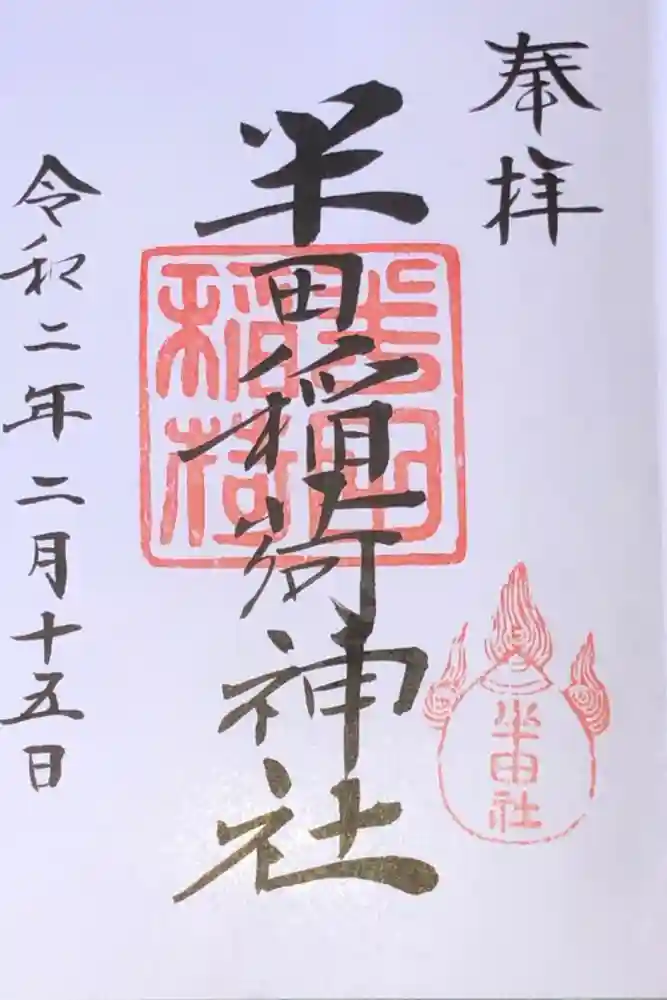 奉拝
半田稲荷神社
半田稲荷
半田社
令和二年二月十五日